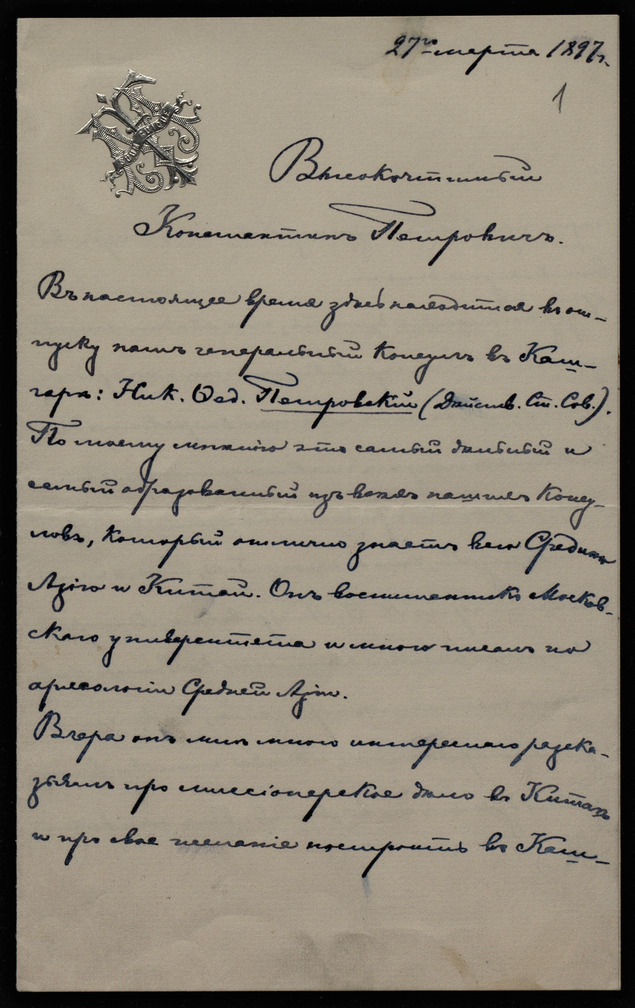 27го марта 1897г.
1
Высокочтимый
Константинъ Петровичъ.
Въ настоящее время здѣсь находится въ от-
пуску нашъ генеральный Консулъ въ Каш-
гарѣ: Ник. Ѳед. Петровскій (Дѣйств. Ст. Сов.).
По моему мнѣнію это самый дѣльный и
самый образованный изъ всѣхъ нашихъ Консу-
ловъ, который отлично знаетъ всю Среднюю
Азію и Китай. Онъ воспитанникъ Москов-
скаго университета и много писалъ по
археологіи Средней Азіи.
Вчера онъ мнѣ много интереснаго разска-
зывалъ про миссіонерское дѣло въ Китаѣ
и про свое желаніе построить въ Каш-